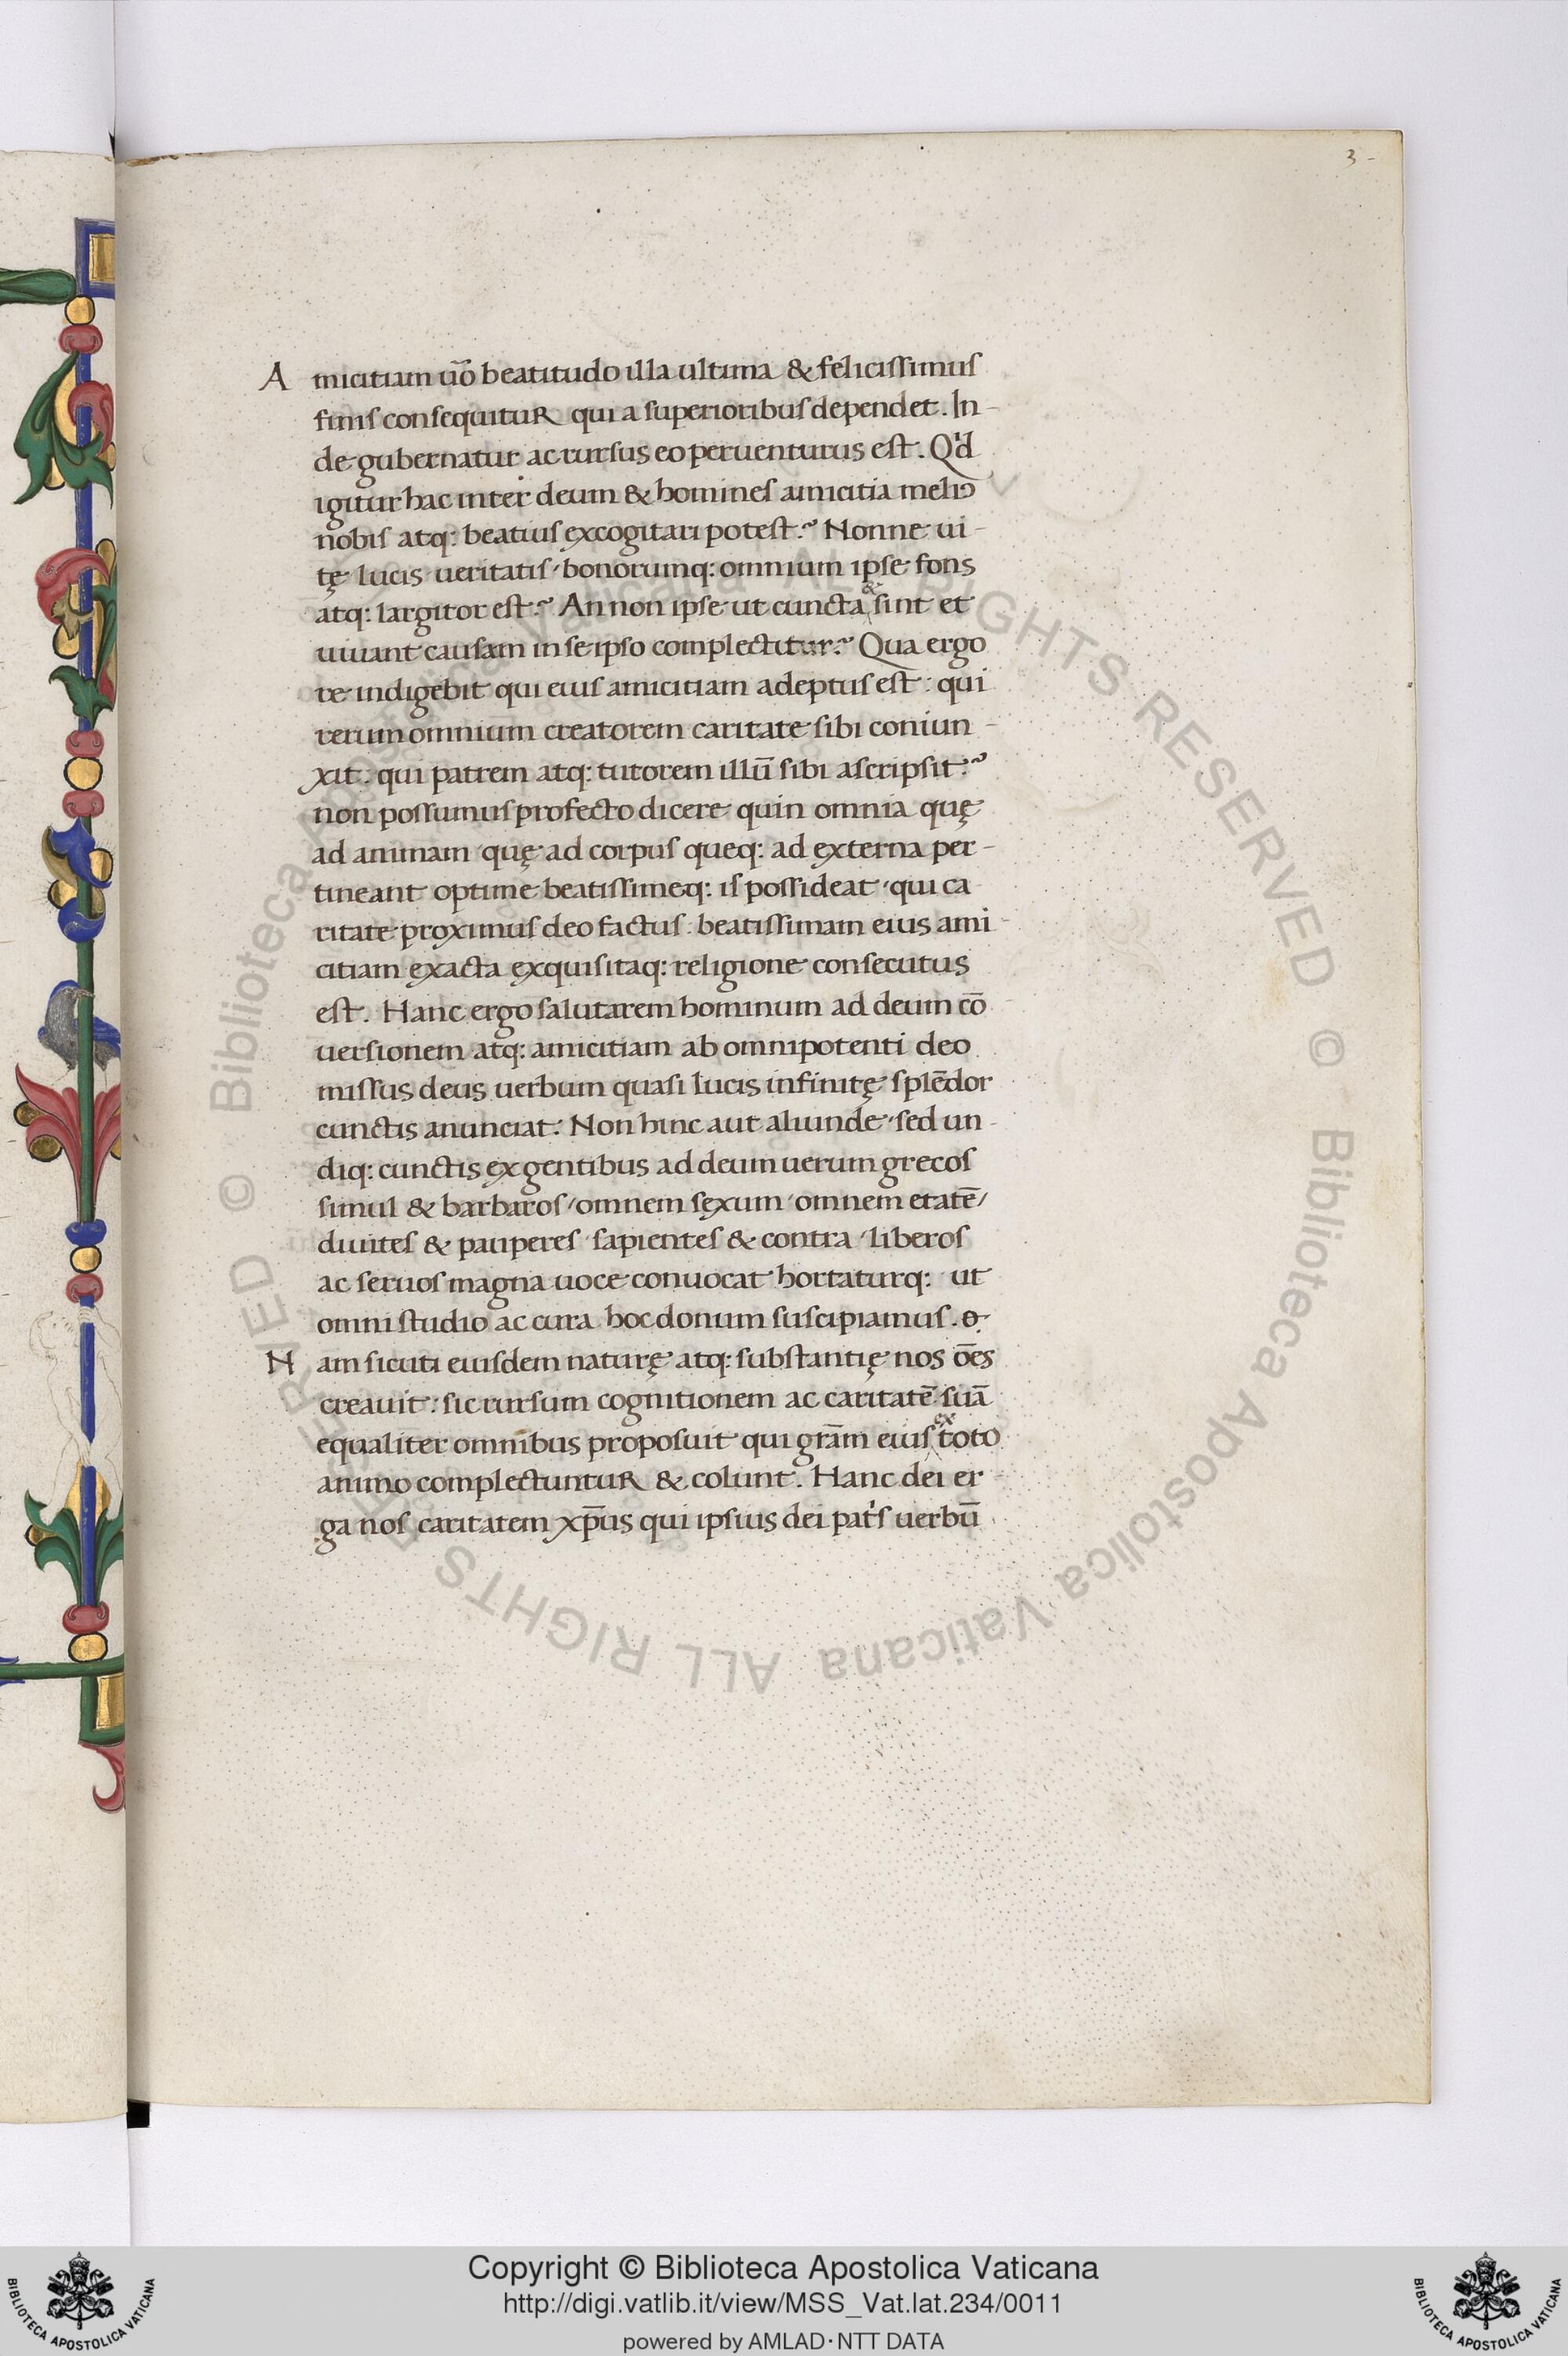 3 -
A micitiam uō beatitudo illa ultima & felicissimus
finis consequitur qui a superioribus dependet. In-
de gubernatur ac rursus eo peruenturus est. Qd
igitur hac inter deum & homines amicitia meliꝰ
nobis atq: beatius excogitari potest? Nonne ui-
tę lucis ueritatis bonorumq: omnium ipse fons
atq: largitor est? An non ipse ut cuncta & sint et
uiuant causam in se ipso complectitur? Qua ergo
re indigebit qui eius amicitiam adeptus est: qui
rerum omnium creatorem caritate sibi coniun-
xit: qui patrem atq: tutorem illū sibi ascripsit?
non possumus profecto dicere quin omnia quę
ad animam quę ad corpus queq: ad externa per-
tineant optime beatissimeq: is possideat qui ca-
ritate proximus deo factus: beatissimam eius ami-
citiam exacta exquisitaq: religione consecutus
est. Hanc ergo salutarem hominum ad deum cō-
uersionem atq: amicitiam ab omnipotenti deo
missus deus uerbum quasi lucis infinitę splēdor
cunctis anunciat. Non hinc aut aliunde sed un-
diq: cunctis ex gentibus ad deum uerum grecos
simul & barbaros/omnem sexum omnem etatē/
diuites & pauperes sapientes & contra liberos
ac seruos magna uoce conuocat hortaturq: ut
omni studio ac cura hoc donum suscipiamus.
N am sicuti eiusdem naturę atq: substantię nos ōes
creauit: sic rursum cognitionem ac caritatē suā
equaliter omnibus proposuit qui grām eius ex toto
animo complectuntur & colunt. Hanc dei er-
ga nos caritatem xp̄us qui ipsius dei patˡs uerbū
© Biblioteca Apostolica Vaticana ALL RIGHTS RESERVED © Biblioteca Apostolica Vaticana ALL RIGHTS RESERVED
Copyright © Biblioteca Apostolica Vaticana
http://digi.vatlib.it/view/MSS_Vat.lat.234/0011
powered by AMLAD·NTT DATA
BIBLIOTECA APOSTOLICA VATICANA
BIBLIOTECA APOSTOLICA VATICANA